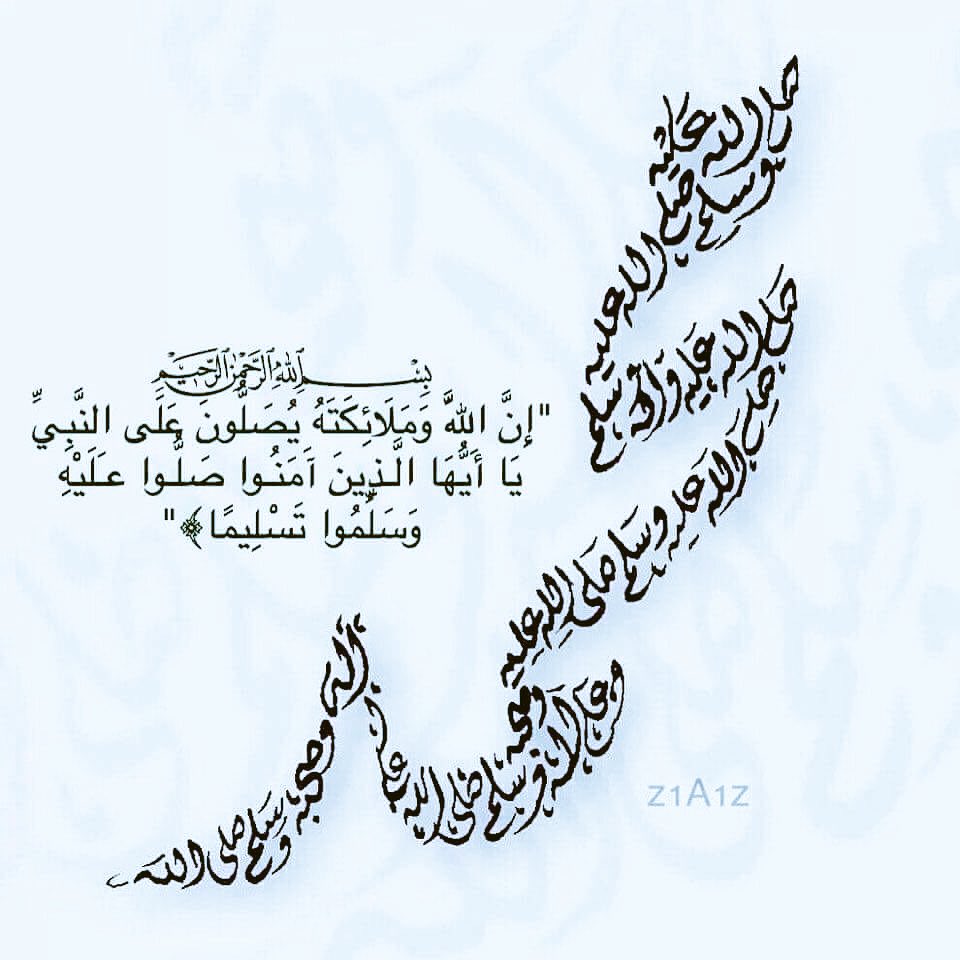 صلى الله عليه
وسلم صلى
الله عليه
وسلم
صلى الله عليه وآله
صلى الله عليه وسلم صلى الله عليه
وصحبه
وعلى آله
وسلم صلى الله
آله وصحبه
وسلم صلى الله
بِسْمِ اللهِ الرَّحْمٰنِ الرَّحِيمِ
"إِنَّ اللهَّ وَمَلَائِكَتَهُ يُصَلُّونَ عَلَى النَّبِيِّ
يَا أَيُّهَا الَّذِينَ آمَنُوا صَلُّوا عَلَيْهِ
وَسَلِّمُوا تَسْلِيمًا﴾"
z1A1z